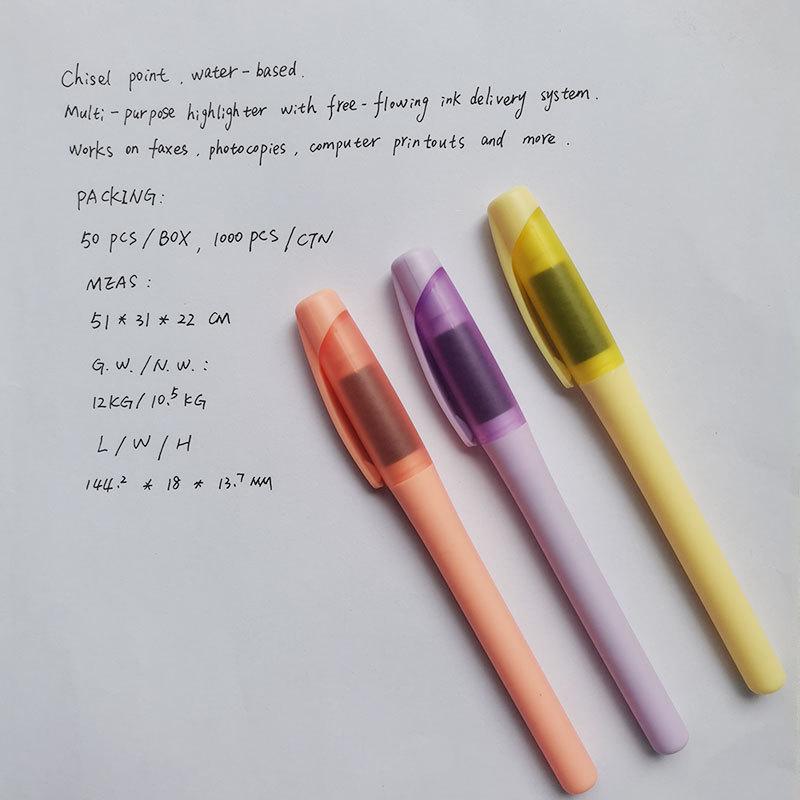 Chisel point, water-based.
Multi-purpose highlighter with free-flowing ink delivery system.
Works on faxes, photocopies, computer printouts and more.
PACKING:
50 PCS/BOX, 1000 PCS/CTN
MEAS:
51 * 31 * 22 CM
G.W./N.W.:
12KG/10.5KG
L/W/H
144.2 * 18 * 13.7 MM